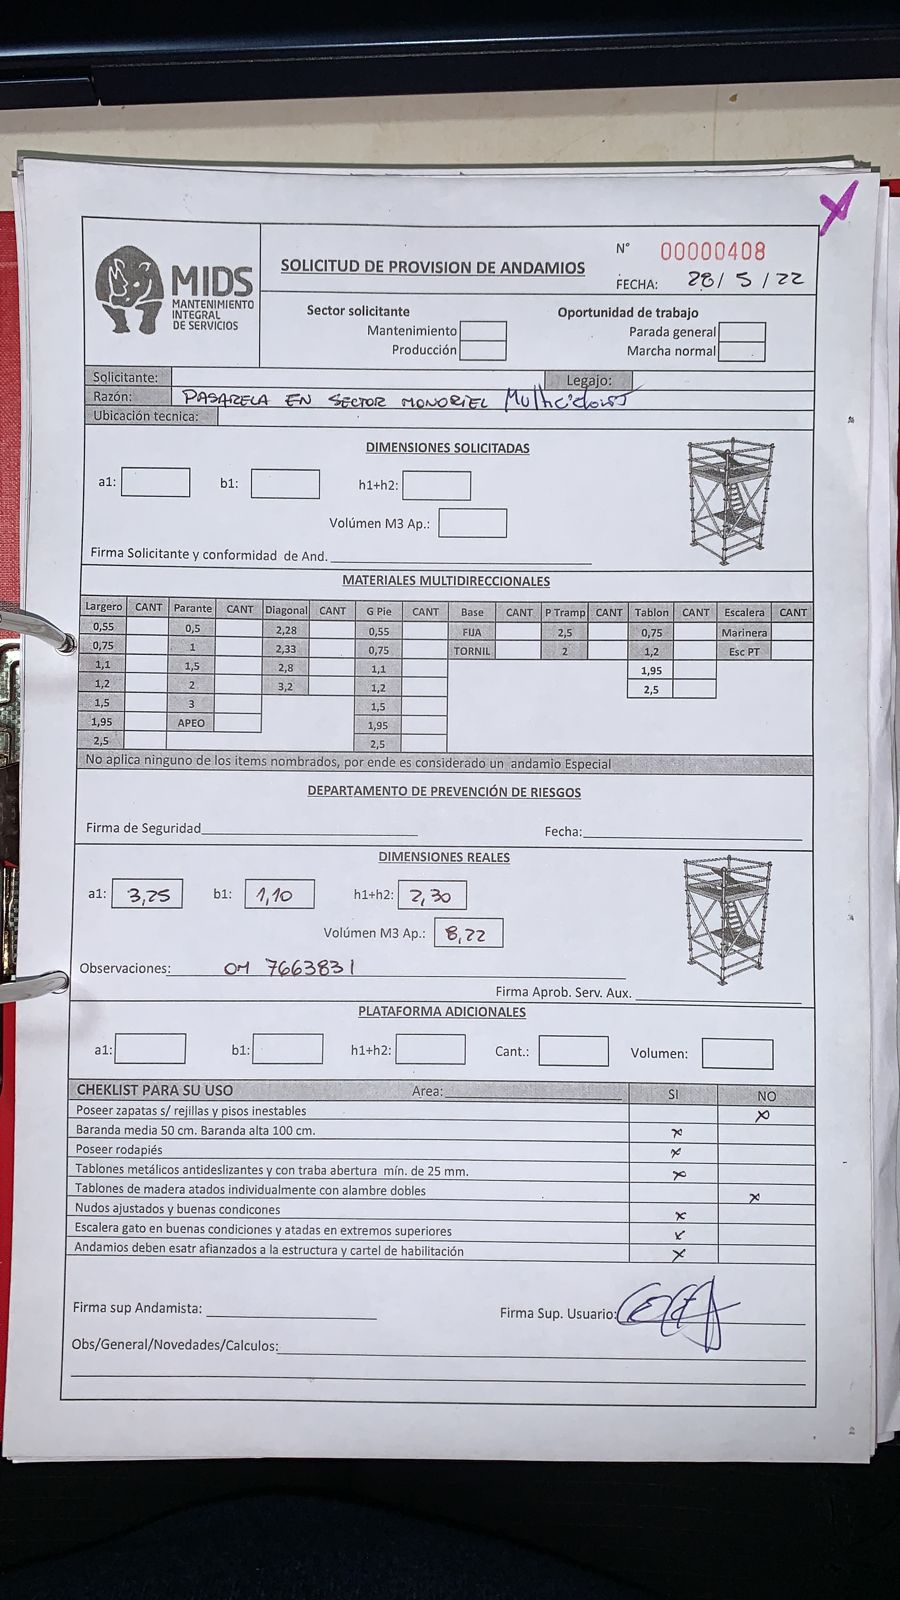 MIDS
MANTENIMIENTO
INTEGRAL
DE SERVICIOS
SOLICITUD DE PROVISION DE ANDAMIOS
N° 00000408
FECHA: 28/ 5 / 22
Sector solicitante Oportunidad de trabajo
Mantenimiento Parada general
Producción Marcha normal
Solicitante: Legajo:
Razón: PASARELA EN SECTOR MONORIEL Multiciclones
Ubicación tecnica:
DIMENSIONES SOLICITADAS
a1: b1: h1+h2:
Volúmen M3 Ap.:
Firma Solicitante y conformidad de And.
MATERIALES MULTIDIRECCIONALES
Largero CANT Parante CANT Diagonal CANT G Pie CANT Base CANT P Tramp CANT Tablon CANT Escalera CANT
0,55 0,5 2,28 0,55 FIJA 2,5 0,75 Marinera
0,75 1 2,33 0,75 TORNIL 2 1,2 Esc PT
1,1 1,5 2,8 1,1 1,95
1,2 2 3,2 1,2 2,5
1,5 3 1,5
1,95 APEO 1,95
2,5 2,5
No aplica ninguno de los items nombrados, por ende es considerado un andamio Especial
DEPARTAMENTO DE PREVENCIÓN DE RIESGOS
Firma de Seguridad Fecha:
DIMENSIONES REALES
a1: 3,25 b1: 1,10 h1+h2: 2,30
Volúmen M3 Ap.: 8,22
Observaciones: OM 7663831
Firma Aprob. Serv. Aux.
PLATAFORMA ADICIONALES
a1: b1: h1+h2: Cant.: Volumen:
CHEKLIST PARA SU USO Area: SI NO
Poseer zapatas s/ rejillas y pisos inestables x
Baranda media 50 cm. Baranda alta 100 cm. x
Poseer rodapiés x
Tablones metálicos antideslizantes y con traba abertura mín. de 25 mm. x
Tablones de madera atados individualmente con alambre dobles x
Nudos ajustados y buenas condicones x
Escalera gato en buenas condiciones y atadas en extremos superiores x
Andamios deben esatr afianzados a la estructura y cartel de habilitación x
Firma sup Andamista: Firma Sup. Usuario:
Obs/General/Novedades/Calculos: